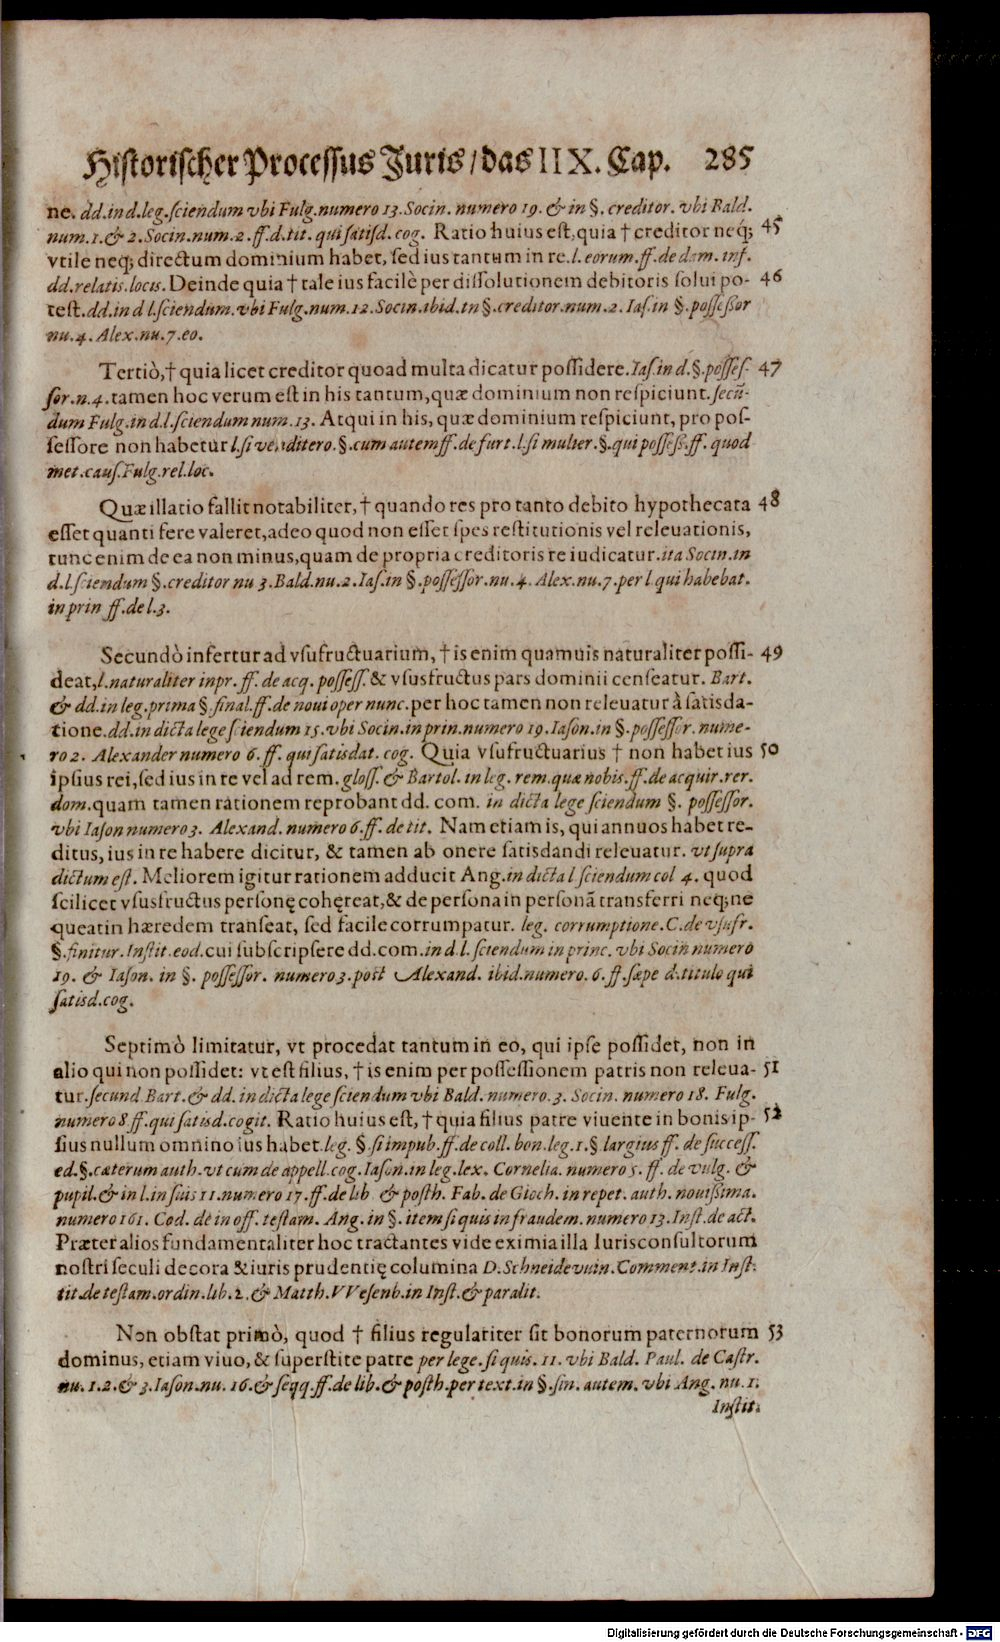 Historischer Processus Juris/das IIX. Cap. 285
ne. dd. in d. leg. sciendum vbi Fulg. numero 13. Socin. numero 19. & in §. creditor. vbi Bald.
num. 1. & 2. Socin. num. 2. ff. d. tit. qui satisd. cog. Ratio huius est, quia † creditor neq; 45
vtile neq; directum dominium habet, sed ius tantum in re. l. eorum. ff. de dam. inf.
dd. relatis. locis. Deinde quia † tale ius facilè per dissolutionem debitoris solui po- 46
test. dd. in d l. sciendum. vbi Fulg. num. 12. Socin. ibid. in §. creditor. num. 2. Ias. in §. possessor
nu. 4. Alex. nu. 7. eo.
Tertiò, † quia licet creditor quoad multa dicatur possidere. Ias. in d. §. posses- 47
sor. n. 4. tamen hoc verum est in his tantum, quæ dominium non respiciunt. secũ-
dum Fulg. in d. l. sciendum num. 13. Atqui in his, quæ dominium respiciunt, pro pos-
sessore non habetur l. si venditero. §. cum autem ff. de furt. l. si mulier. §. qui possess. ff. quod
met. caus. Fulg. rel. loc.
Quæ illatio fallit notabiliter, † quando res pro tanto debito hypothecata 48
esset quanti fere valeret, adeo quod non esset spes restitutionis vel releuationis,
tunc enim de ea non minus, quam de propria creditoris re iudicatur. ita Socin. in
d. l. sciendum §. creditor nu 3. Bald. nu. 2. Ias. in §. possessor. nu. 4. Alex. nu. 7. per l. qui habebat.
in prin ff. de l. 3.
Secundò infertur ad vsufructuarium, † is enim quamuis naturaliter possi- 49
deat, l. naturaliter in pr. ff. de acq. possess. & vsusfructus pars dominii censeatur. Bart.
& dd. in leg. prima §. final. ff. de noui oper nunc. per hoc tamen non releuatur à satisda-
tione. dd. in dicta lege sciendum 15. vbi Socin. in prin. numero 19. Iason. in §. possessor. nume-
ro 2. Alexander numero 6. ff. qui satisdat. cog. Quia vsufructuarius † non habet ius 50
ipsius rei, sed ius in re vel ad rem. gloss. & Bartol. in leg. rem. quæ nobis. ff. de acquir. rer.
dom. quam tamen rationem reprobant dd. com. in dicta lege sciendum §. possessor.
vbi Iason numero 3. Alexand. numero 6. ff. de tit. Nam etiam is, qui annuos habet re-
ditus, ius in re habere dicitur, & tamen ab onere satisdandi releuatur. vt supra
dictum est. Meliorem igitur rationem adducit Ang. in dicta l sciendum col 4. quod
scilicet vsusfructus personę cohęreat, & de persona in personã transferri neq; ne
queat in hæredem transeat, sed facile corrumpatur. leg. corrumptione. C. de vsufr.
§. finitur. Instit. eod. cui subscripsere dd. com. in d. l. sciendum in princ. vbi Socin numero
19. & Iason. in §. possessor. numero 3. post Alexand. ibid. numero. 6. ff. sæpe d. titulo qui
satisd. cog.
Septimò limitatur, vt procedat tantum in eo, qui ipse possidet, non in
alio qui non possidet: vt est filius, † is enim per possessionem patris non releua- 51
tur. secund. Bart. & dd. in dicta lege sciendum vbi Bald. numero. 3. Socin. numero 18. Fulg.
numero 8. ff. qui satisd. cogit. Ratio huius est, † quia filius patre viuente in bonis ip- 52
sius nullum omnino ius habet. leg. §. si impub. ff. de coll. bon. leg. 1. §. largius ff. de success.
ed. §. cæterum auth. vt cum de appell. cog. Iason. in leg. lex. Cornelia. numero 5. ff. de vulg. &
pupil. & in l. in suis 11. numero 17. ff. de lib. & posth. Fab. de Gioch. in repet. auth. nouissima.
numero 161. Cod. de in off. testam. Ang. in §. item si quis in fraudem. numero 13. Inst. de act.
Præter alios fundamentaliter hoc tractantes vide eximia illa Iurisconsultorum
nostri seculi decora & iuris prudentię columina D. Schneidevuin. Comment. in Inst.
tit. de testam. ordin. lib. 2. & Matth. VVesenb. in Inst. & paralit.
Non obstat primò, quod † filius regulariter sit bonorum paternorum 53
dominus, etiam viuo, & superstite patre per lege. si quis. 11. vbi Bald. Paul. de Castr.
nu. 1. 2. & 3. Iason. nu. 16. & seqq. ff. de lib. & posth. per text. in §. sin. autem. vbi Ang. nu. 1.
Instit.
Digitalisierung gefördert durch die Deutsche Forschungsgemeinschaft - DFG